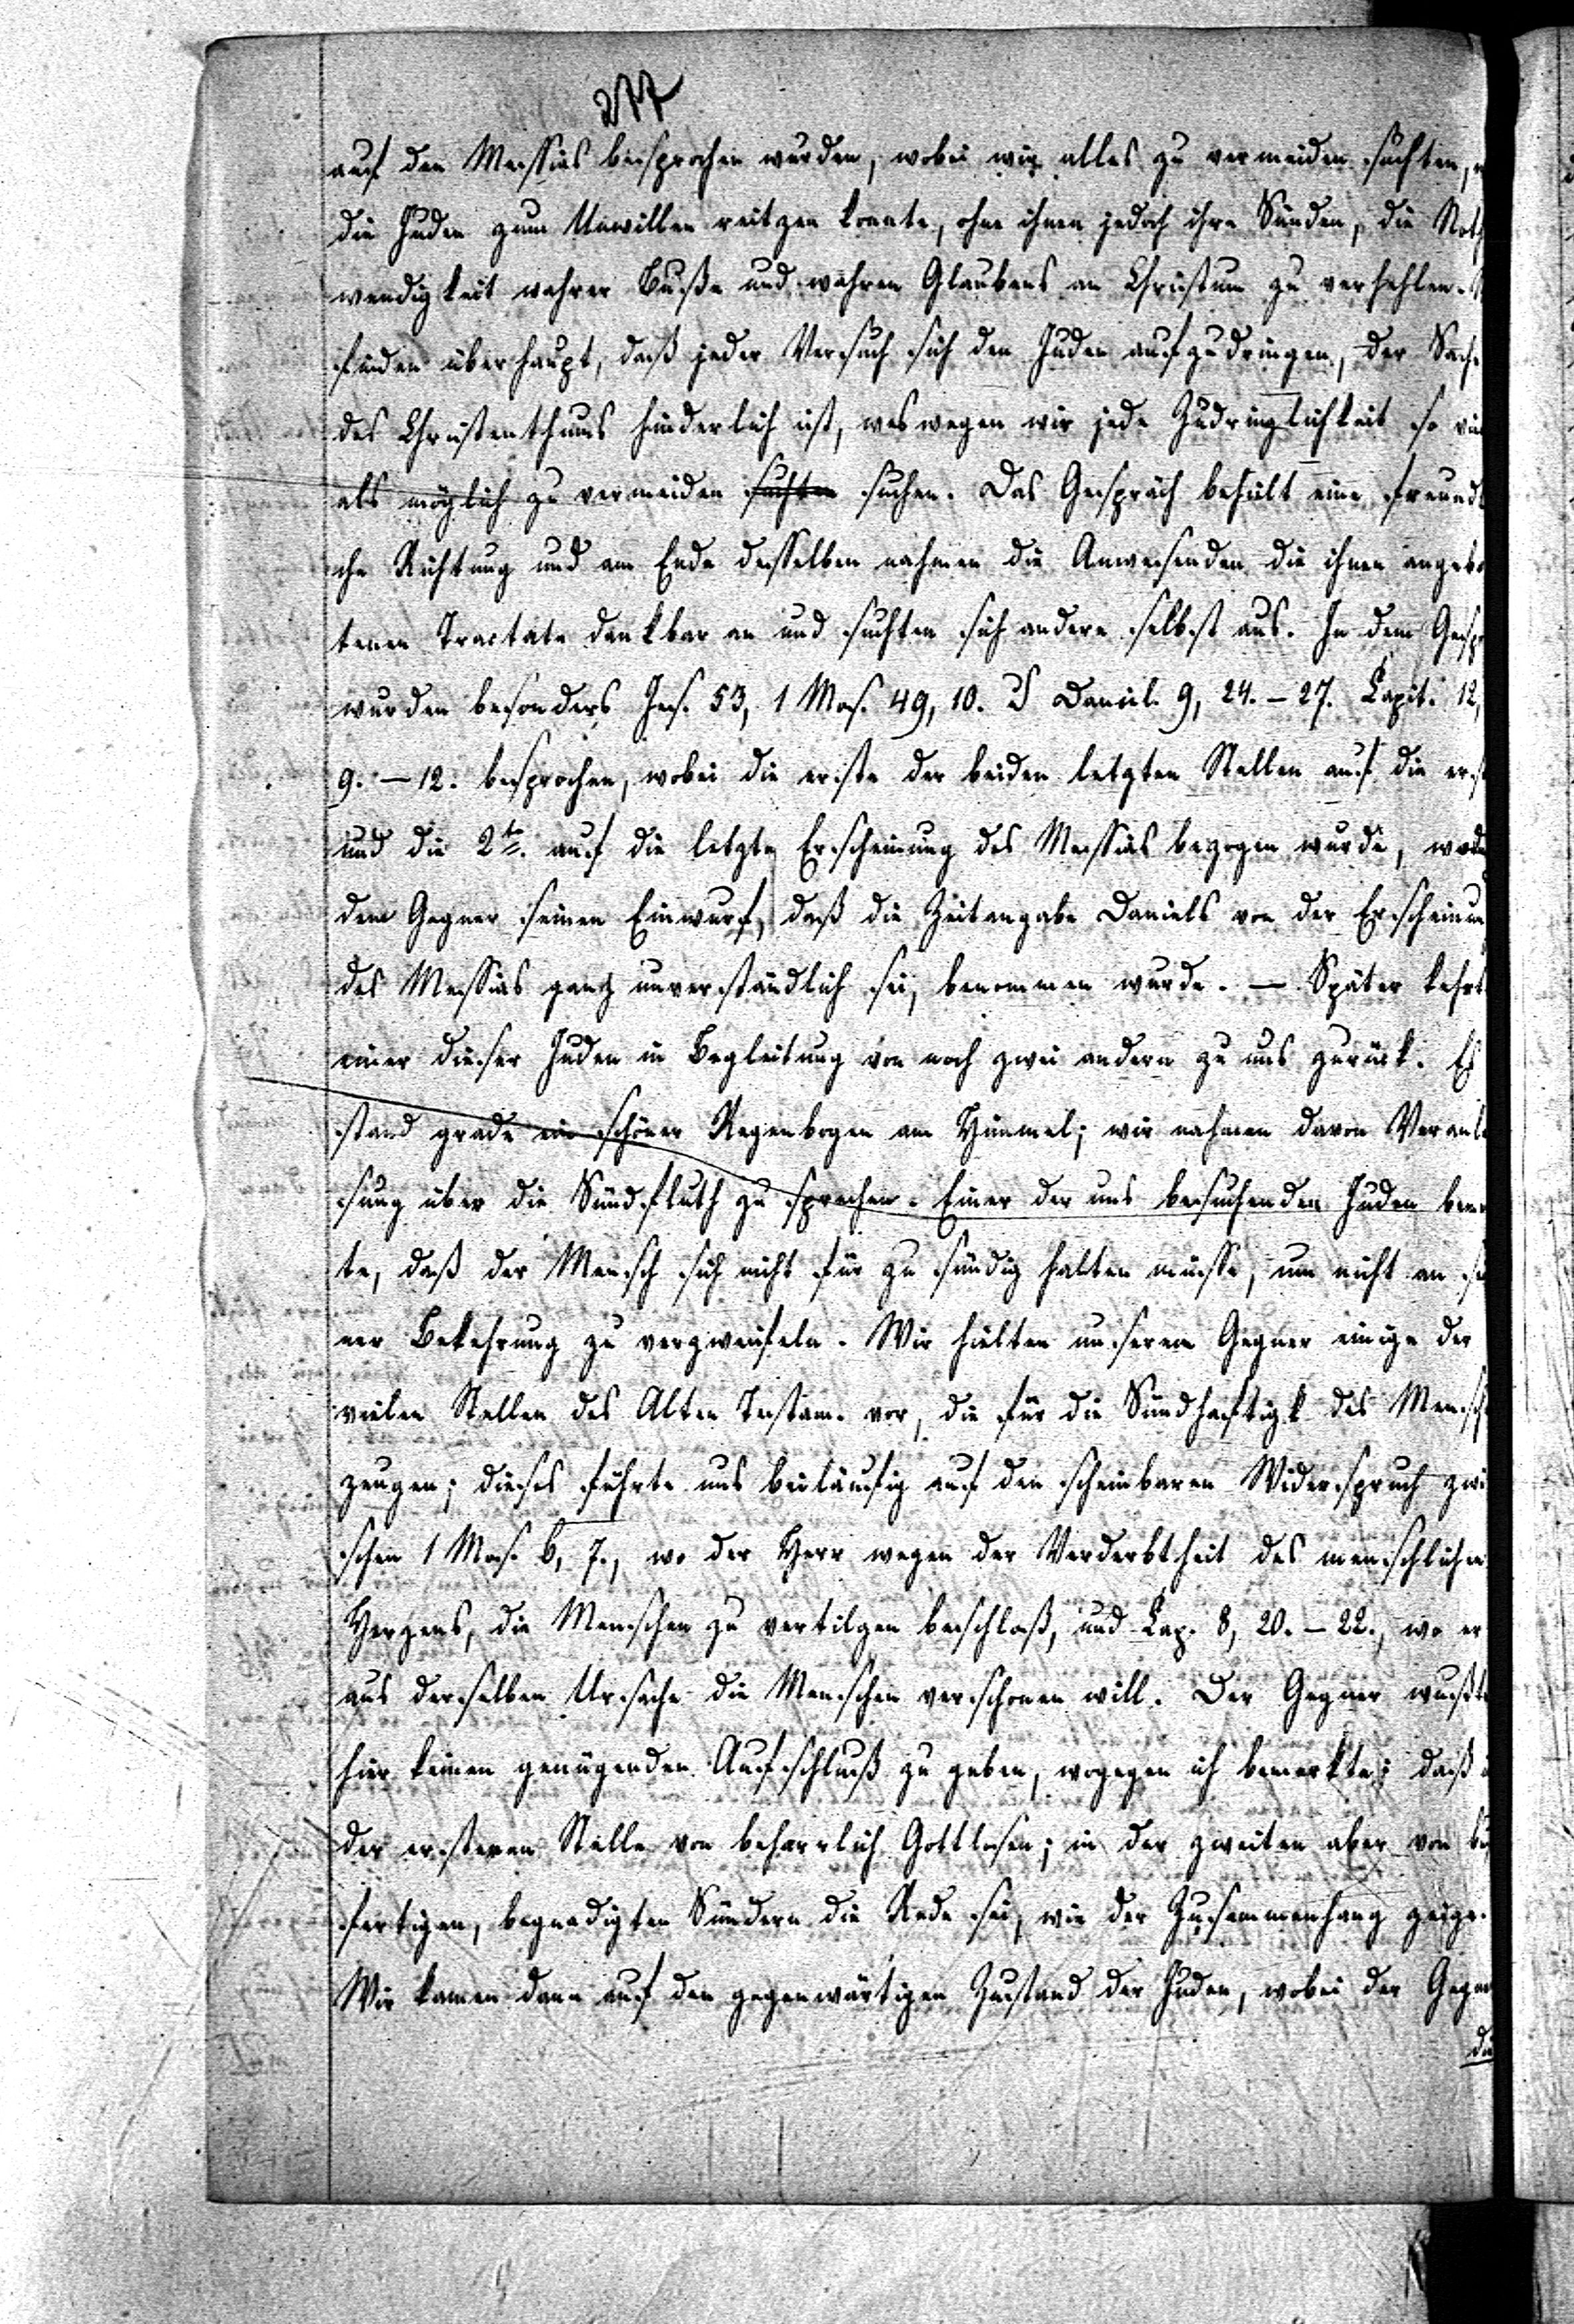 277
auf den Messias besprochen wurden, wobei wir alles zu vermeiden suchten,
die Juden zum Unwillen reitzen konnte, ohne ihnen jedoch ihre Sünden, die Noth
wendigkeit wahrer Buße und wahren Glaubens an Christum zu verhehlen.
finden überhaupt, daß jeder Versuch sich den Juden aufzudringen, der Sache
des Christenthums hinderlich ist, weswegen wir jede Zudringlichkeit so viel
als möglich zu vermeiden suchten suchen. Das Gespräch behielt eine freundl
che Richtung und am Ende desselben nahmen die Anwesenden die ihnen angebo
tenen Tractate dankbar an und suchten sich andere selbst aus. In dem Gespr
wurden besonders Jes. 53, 1 Mos. 49, 10. Daniel 9, 24. – 27. Capit. 12,
9. – 12. besprochen, wobei die erste der beiden letzten Stellen auf die erst
und die 2te. auf die letzte Erscheinung des Messias bezogen wurde, wodu
dem Gegner seinen Einwurf, daß die Zeitangabe Daniels von der Erscheinun
des Messias ganz unverständlich sei, benommen wurde. – Später kehrt
einer dieser Juden in Begleitung von noch zwei andern zu uns zurück. Es
stand grade ein schöner Regenbogen am Himmel; wir nahmen davon Veranla
sung über die Sündfluth zu sprechen. Einer der uns besuchenden Juden bemer
te, daß der Mensch sich nicht für zu sündig halten müsse, um nicht an sei
ner Bekehrung zu verzweifeln. Wir hielten unserem Gegner einige der
vielen Stellen des Alten Testam. vor, die für die Sündhaftigk des Mensch
zeugen; dieses führte uns beiläufig auf den scheinbaren Widerspruch zwi
schen 1 Mos. 6, 7., wo der Herr wegen der Verderbtheit des menschlichen
Herzens, die Menschen zu vertilgen beschloß, und Cap. 8, 20. – 22., wo er
aus derselben Ursache die Menschen verschonen will. Der Gegner wußte
hier keinen genügenden Aufschluß zu geben, wogegen ich bemerkte; daß
der ersteren Stelle von beharrlich Gottlosen; in der zweiten aber von buß
fertigen, begnadigten Sündern die Rede sei, wie der Zusammenhang zeige.
Wir kamen dann auf den gegenwärtigen Zustand der Juden, wobei der Gegner